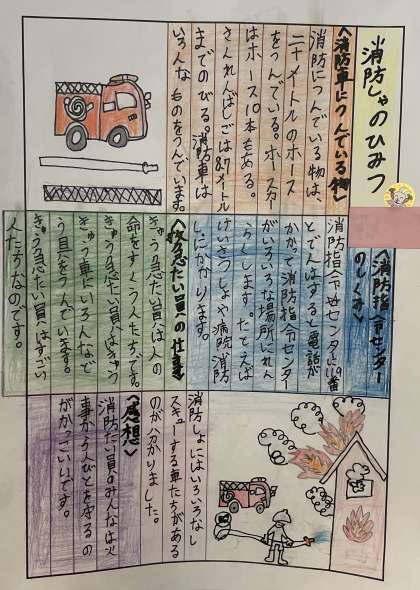 消防しゃのひみつ
〈消防車につんでいる物〉
消防につんでいる物は、
二十メートルのホース
をつんでいる。ホースカー
はホース10本もめる。
さんれんばしごは8.7メートル
までのびる。消防車は
いろんなものをつんでいます。
〈消防指令センター
のしくみ〉
消防指令センターに119番
とでんはすると電話が
かかて消防指令センター
がいろいろな場所にれん
らくします。たとえば
けいさつしょや病院消防
しにかかります。
〈救急たい員の仕事〉
きゅう急たい員は人の
命をすくう人たちです。
きゅう急たい員はきゅう
きゅう車にいろんなど
う具をつんでいます。
きゅう急たい員はすごい
人たちなのです。
消防しょにはいろいろなし
スキューする車たちがある
のが分かりました。
〈感想〉
消防たい員のみんなは火
事から人びとを守るの
がかっこいいです。